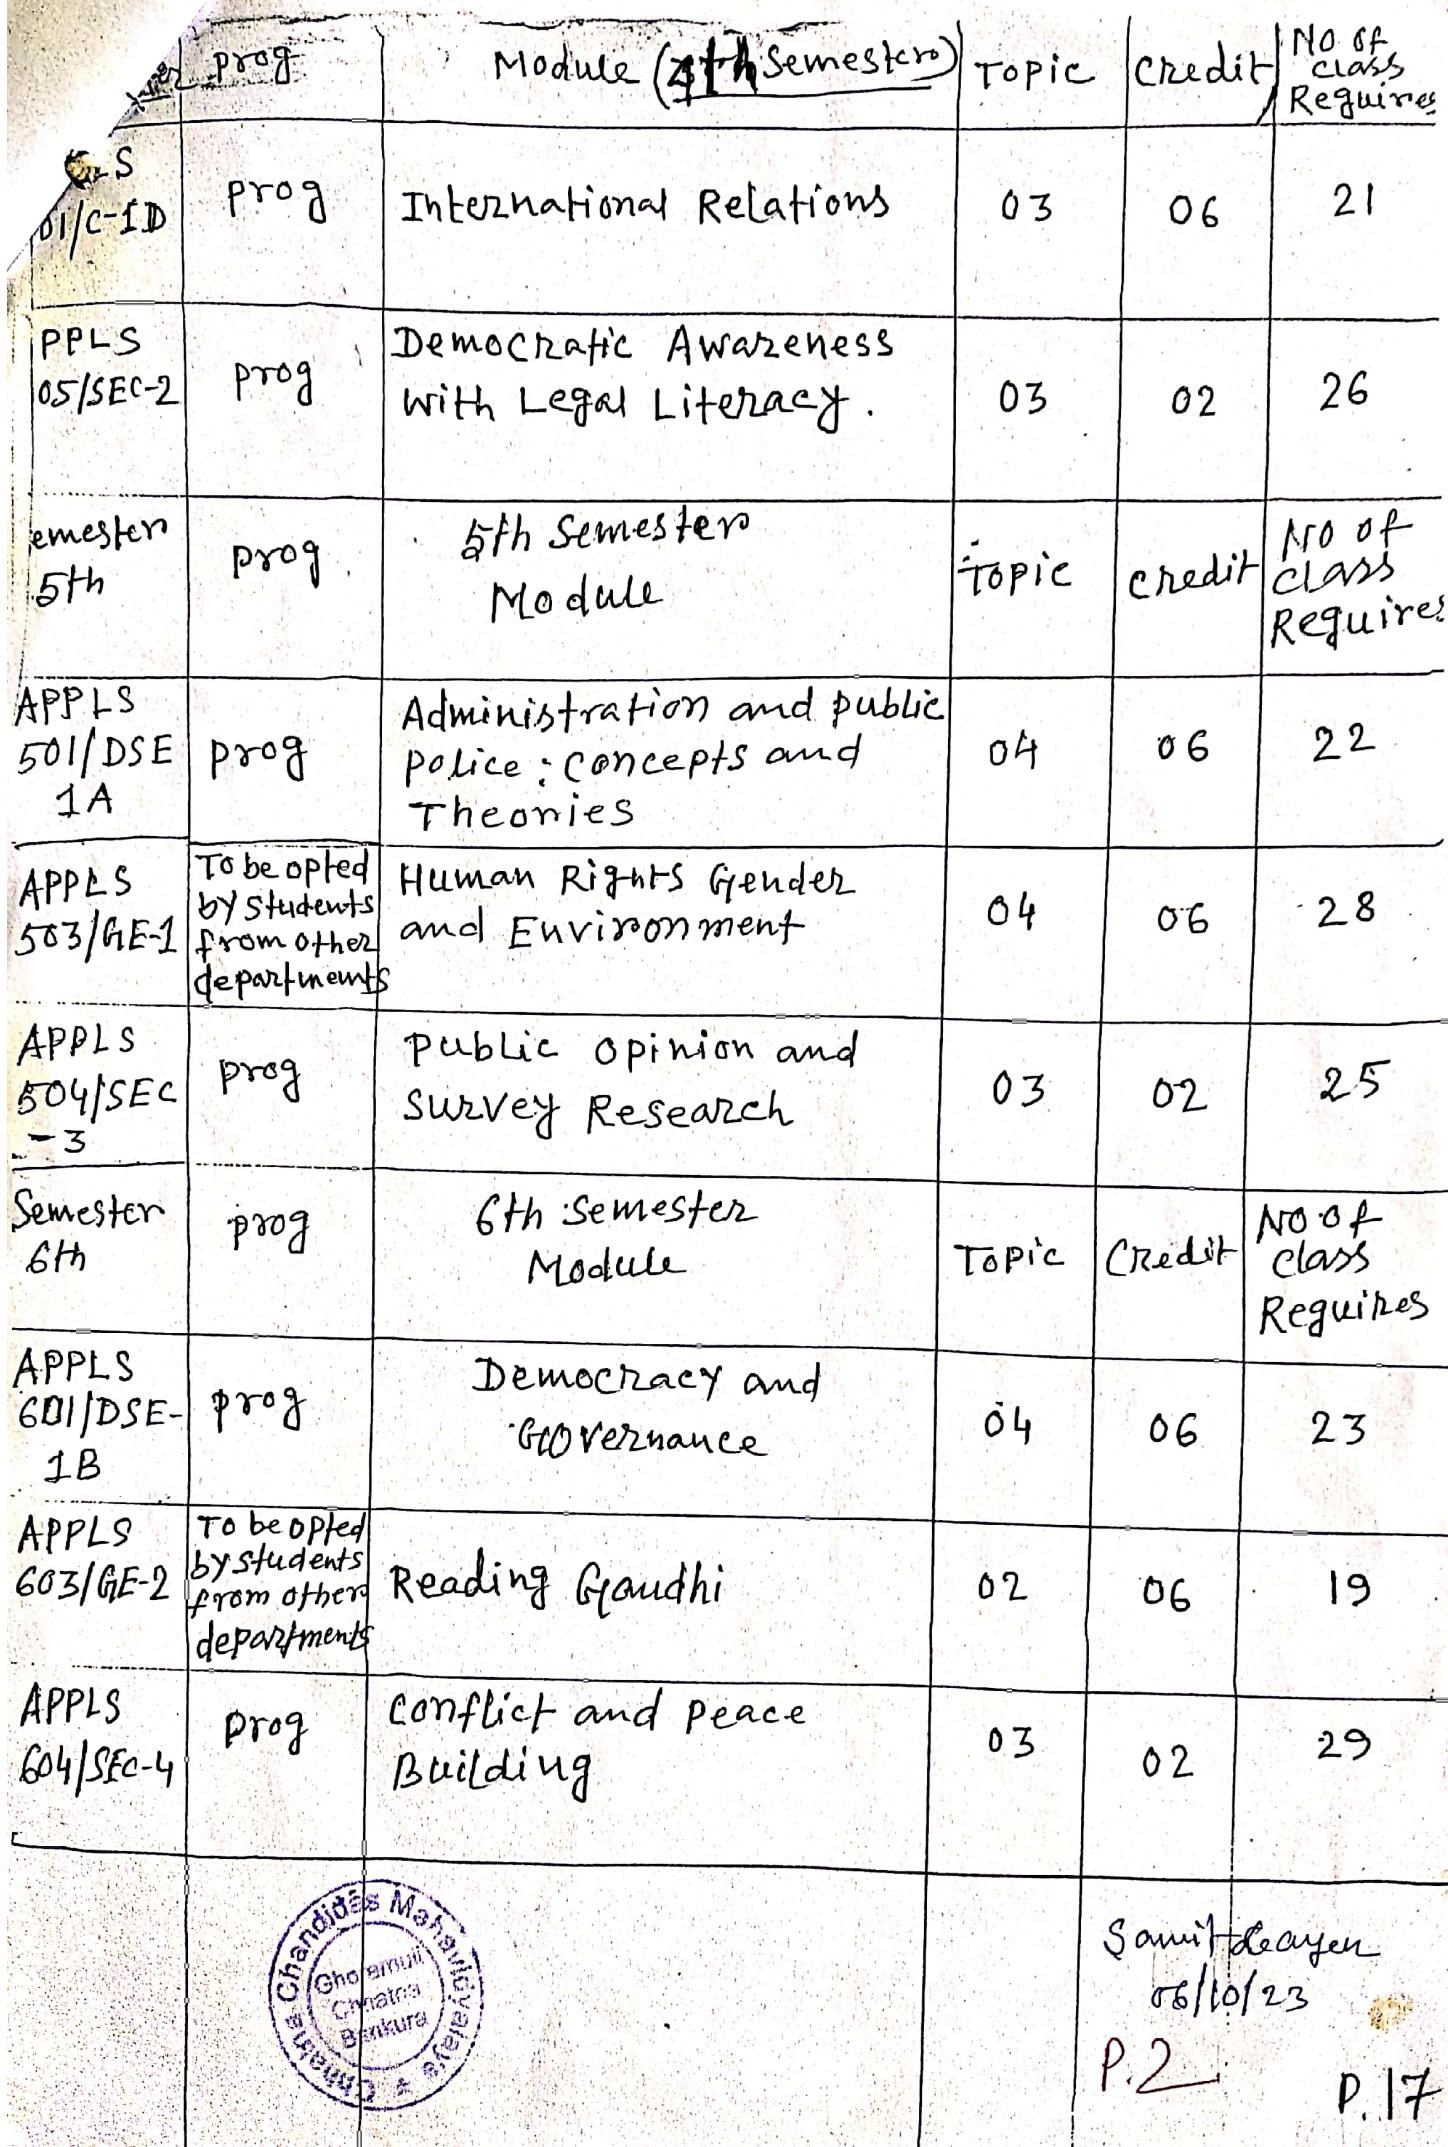 prog Module (4th Semester) Topic Credit No of
class
Requires
LS
01/C-1D prog International Relations 03 06 21
PPLS
05/SEC-2 prog Democratic Awareness
with Legal Literacy. 03 02 26
emester
5th prog 5th Semester
Module Topic credit No of
class
Requires
APPLS
501/DSE
1A prog Administration and public
police : concepts and
Theories 04 06 22
APPLS
503/GE-1 To be opted
by students
from other
departments Human Rights Gender
and Environment 04 06 28
APPLS
504/SEC
-3 prog Public opinion and
Survey Research 03 02 25
Semester
6th prog 6th Semester
Module Topic Credit No of
class
Requires
APPLS
601/DSE-
1B prog Democracy and
Governance 04 06 23
APPLS
603/GE-2 To be opted
by students
from other
departments Reading Gandhi 02 06 19
APPLS
604/SEC-4 prog Conflict and Peace
Building 03 02 29
Chhatna Chandidas Mahavidyalaya *
Ghoramuli
Chhatna
Bankura
06/10/23
P.2
P.17